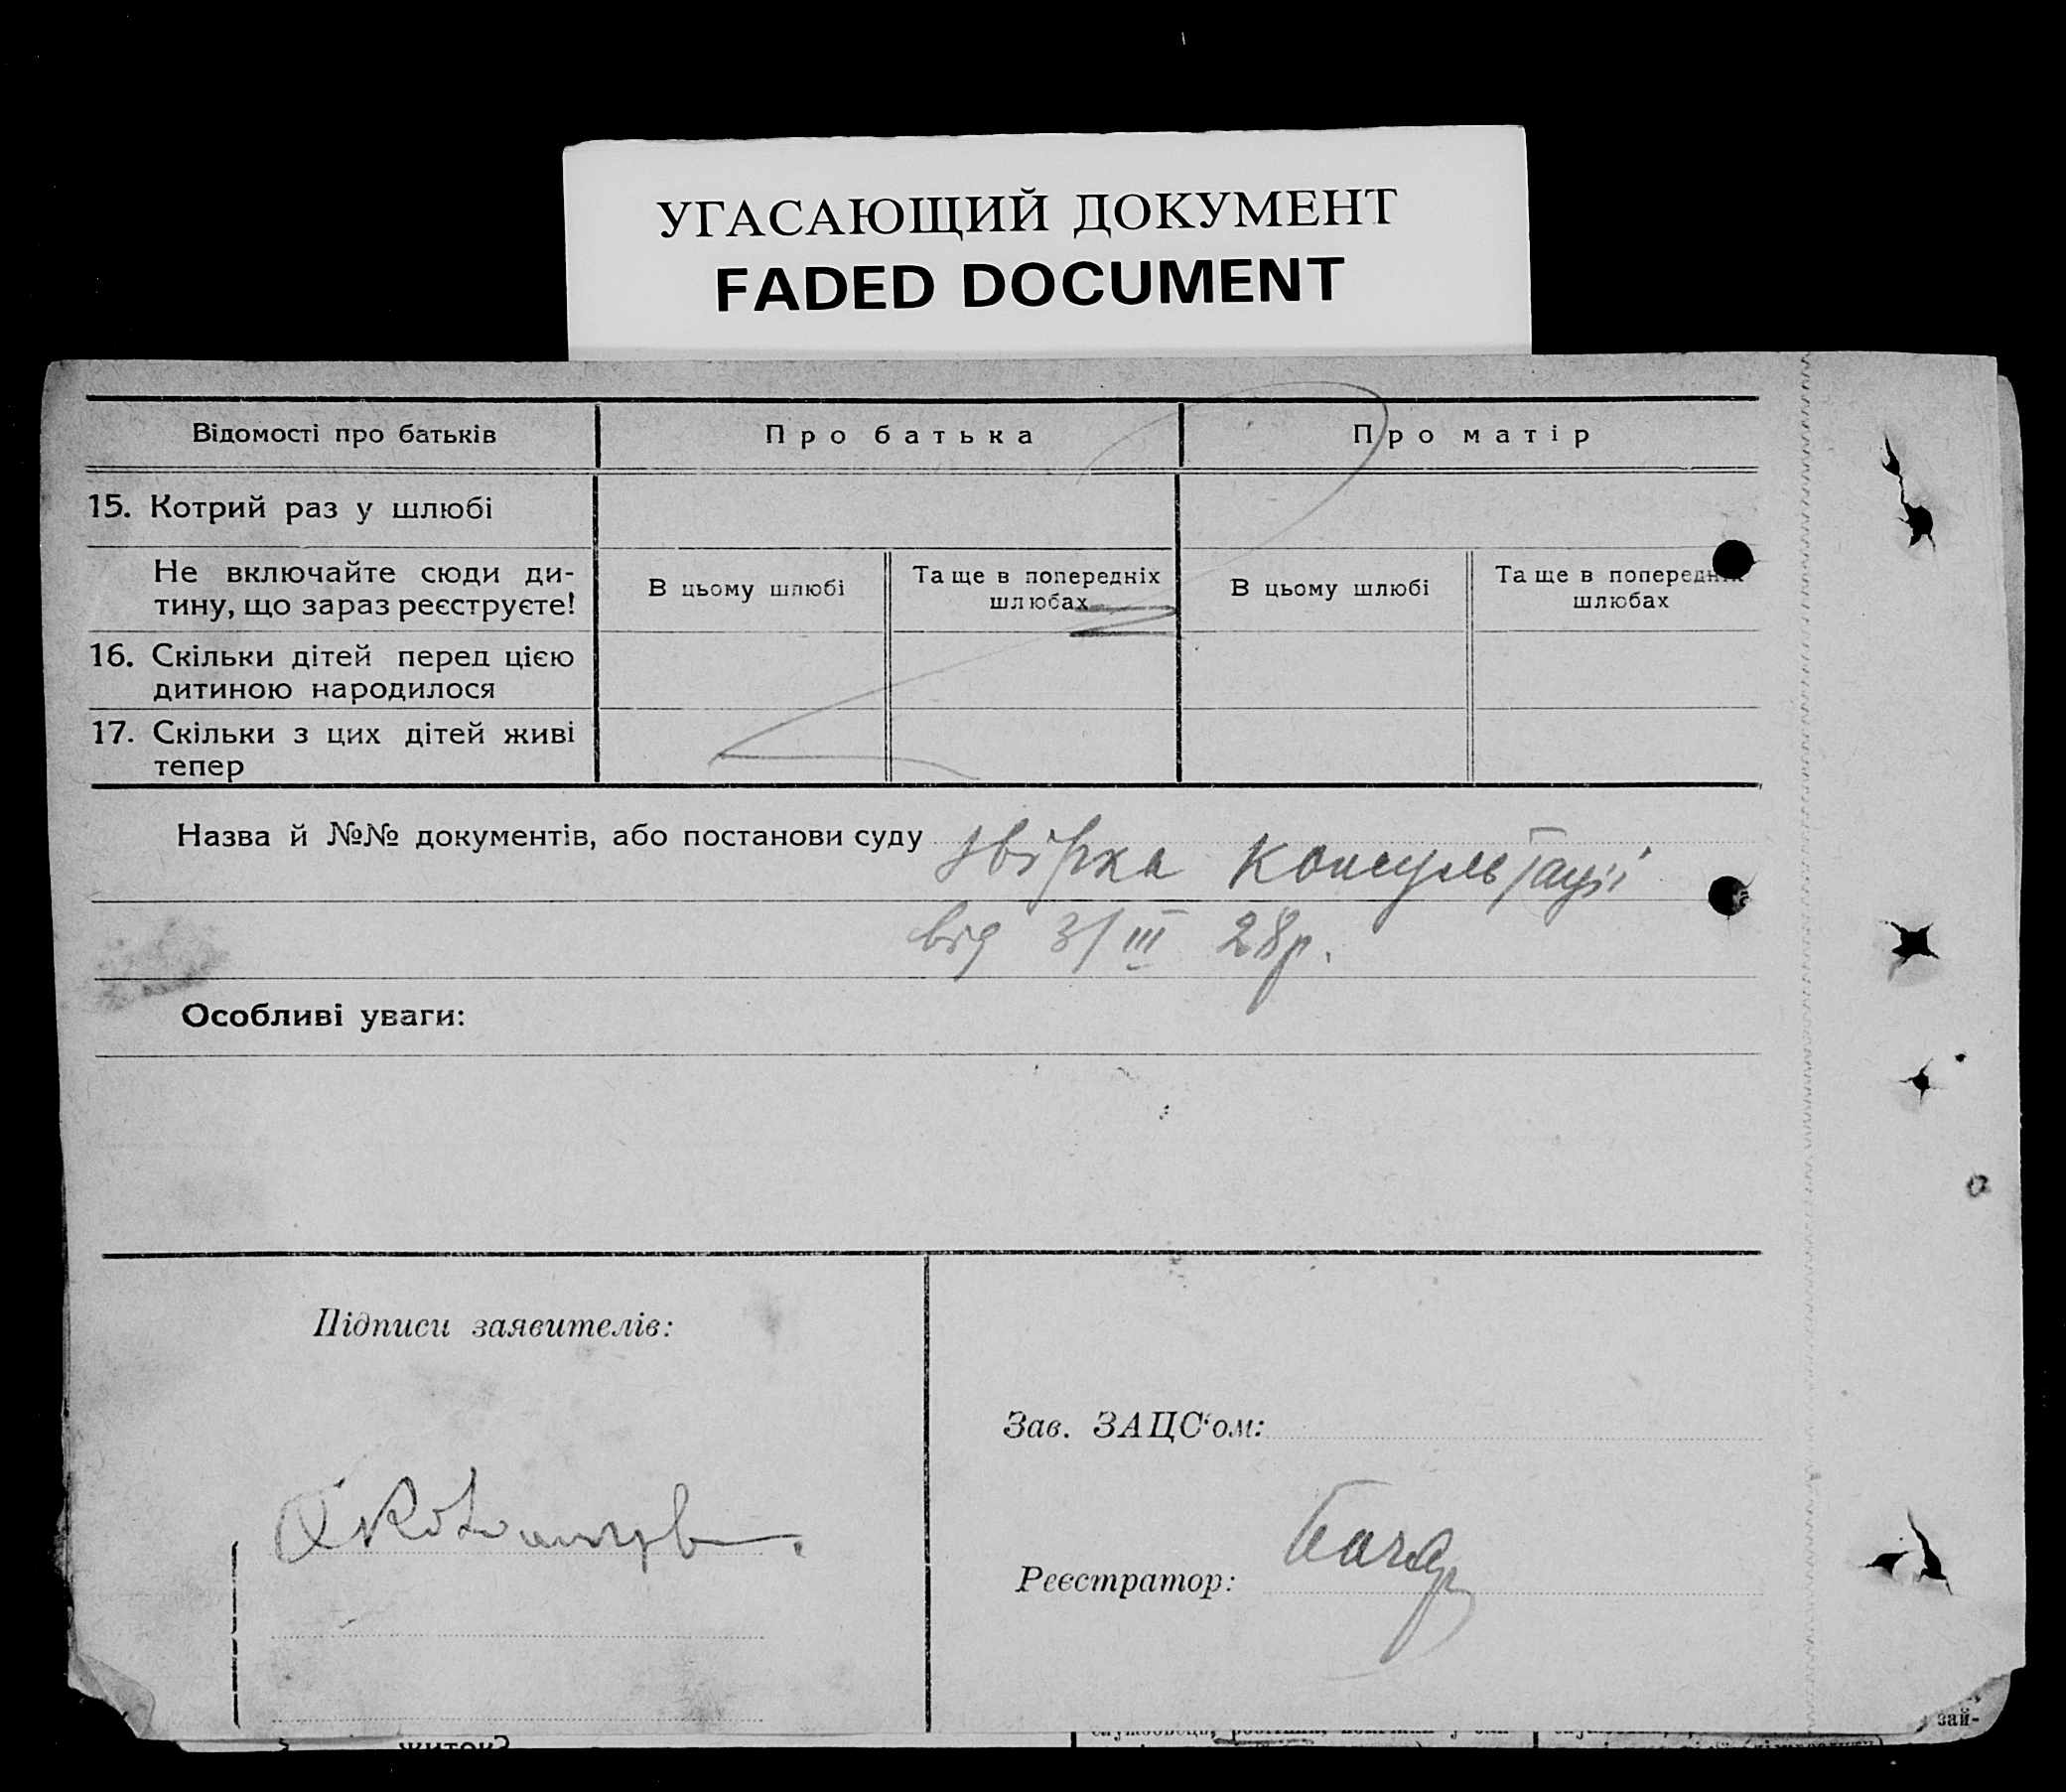 УГАСАЮЩИЙ ДОКУМЕНТ
FADED DOCUMENT
Відомості про батьків
Про батька
Про матір
15. Котрий раз у шлюбі
Не включайте сюди ди-
тину, що зараз реєструєте!
В цьому шлюбі
Та ще в попередніх
шлюбах
В цьому шлюбі
Та ще в попередніх
шлюбах
16. Скільки дітей перед цією
дитиною народилося
17. Скільки з цих дітей живі
тепер
Назва й №№ документів, або постанови суду
консультації
від 3/III 28р.
Особливі уваги:
Підписи заявителів:
Зав. ЗАЦС‘ом:
Реєстратор:
зай-